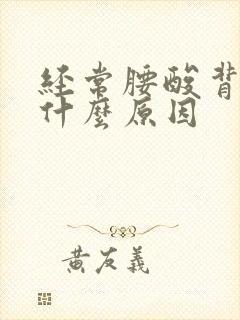 經常腰酸背
什麼原因
黃友義